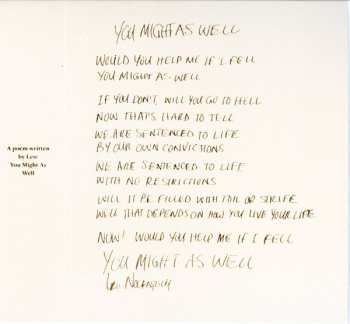 YOU MIGHT AS WELL
WOULD YOU HELP ME IF I FELL
YOU MIGHT AS WELL
IF YOU DON'T, WILL YOU GO TO HELL
NOW THAT'S HARD TO TELL
WE ARE SENTENCED TO LIFE
BY OUR OWN CONVICTIONS
WE ARE SENTENCED TO LIFE
WITH NO RESTRICTIONS
WILL IT BE FILLED WITH TOIL OR STRIFE
WELL THAT DEPENDS ON HOW YOU LIVE YOUR LIFE
NOW! WOULD YOU HELP ME IF I FELL
YOU MIGHT AS WELL
A poem written
by Leo:
You Might As
Well